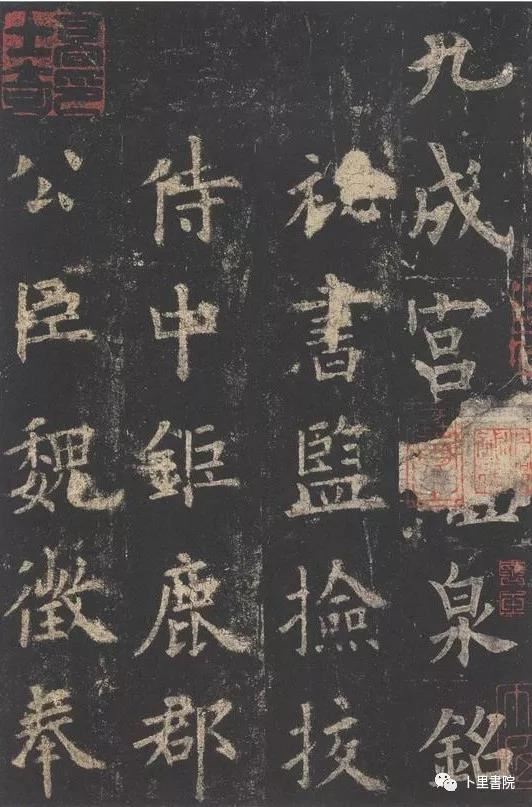 九成宮泉銘
書監撿挍
侍中鉅鹿郡
公臣魏徵奉
卜里書院